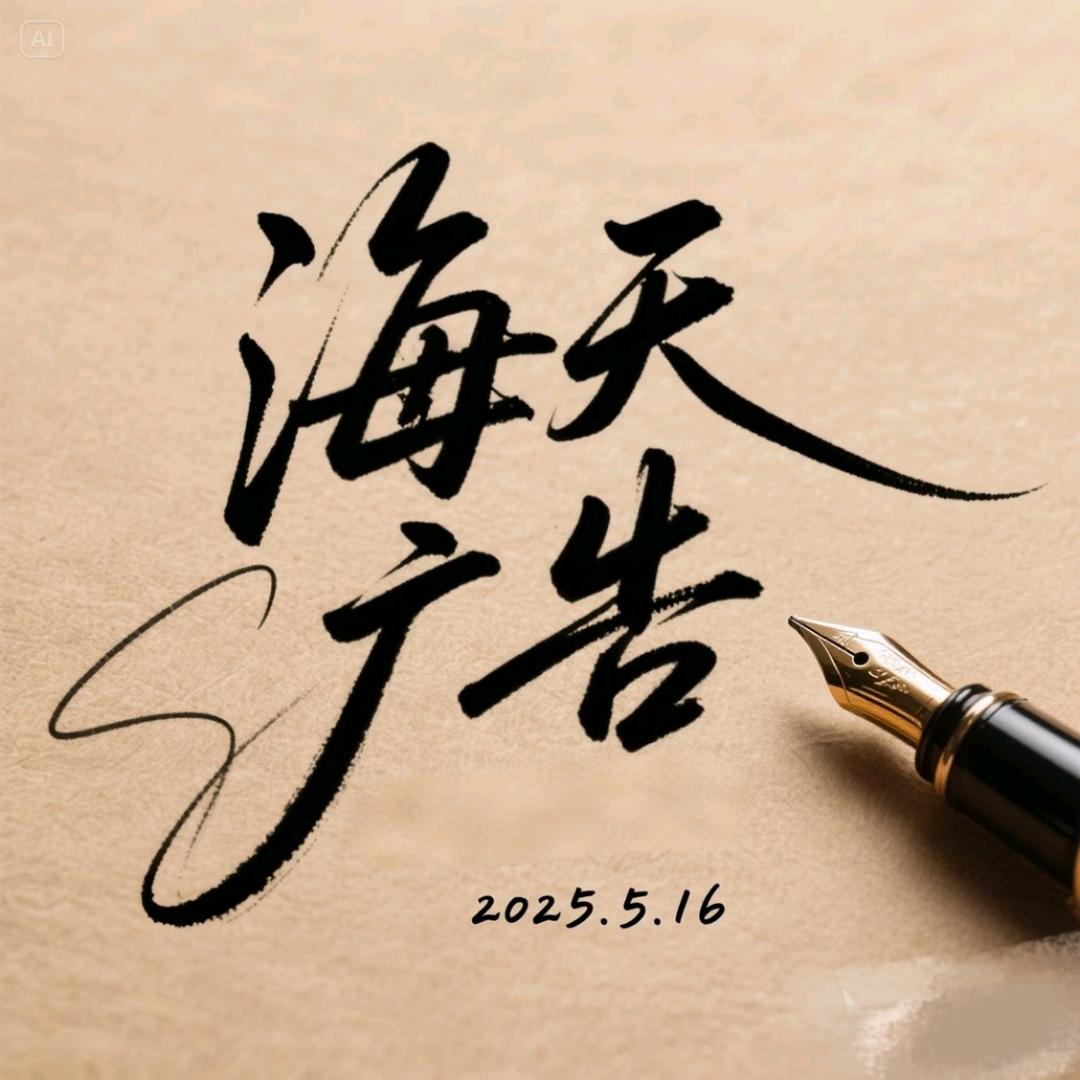 AI
海天
广告
2025.5.16